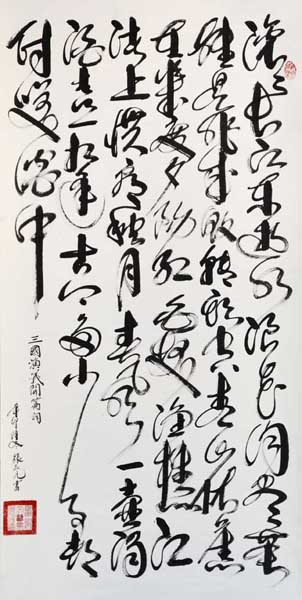 滚滚长江东逝水浪花淘尽英
雄是非成败转头空青山依旧
在几度夕阳红白发渔樵江
渚上惯看秋月春风一壶浊
酒喜相逢古今多少事都
付笑谈中
三國演義開篇詞